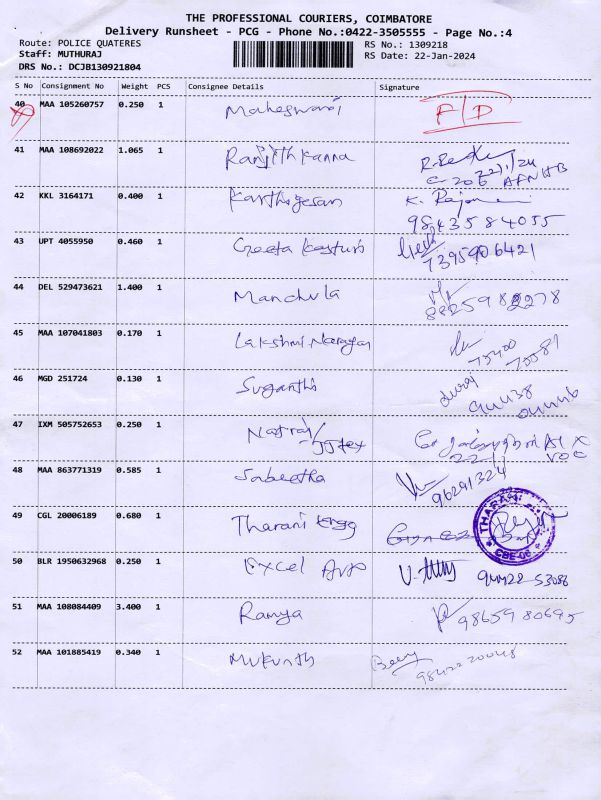 THE PROFESSIONAL COURIERS, COIMBATORE
Delivery Runsheet - PCG - Phone No.:0422-3505555 - Page No.:4
Route: POLICE QUATERES RS No.: 1309218
Staff: MUTHURAJ RS Date: 22-Jan-2024
DRS No.: DCJB130921804
S No Consignment No Weight PCS Consignee Details Signature
40 MAA 105260757 0.250 1 Maheswari F/D
41 MAA 108692022 1.065 1 Ranjith Kanna
42 KKL 3164171 0.400 1 Karthigesan K. Rajamani
9843584055
43 UPT 4055950 0.460 1 Geeta Kasturi
7395906421
44 DEL 529473621 1.400 1 Manchula
8825982278
45 MAA 107041803 0.170 1 Lakshmi Narayan
75400
75581
46 MGD 251724 0.130 1 Suganthi
47 IXM 505752653 0.250 1 Natraj/
48 MAA 863771319 0.585 1 Sabeetha
96291324
49 CGL 20006189 0.680 1 Tharani
THARANI
CBE-06
50 BLR 1950632968 0.250 1 Excel
51 MAA 108084409 3.400 1 Ramya 9865980695
52 MAA 101885419 0.340 1 Mukunth
9842220048